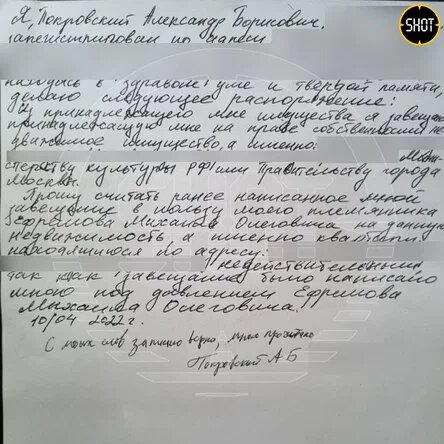 SHOT
Я, Покровский Александр Борисович,
находясь в здравом уме и твёрдой памяти,
делаю следующее распоряжение:
Из принадлежащего мне имущества я завещаю
принадлежащую мне на праве собственности не
движимое имущество, а именно:
Мини
стерству культуры РФ или Правительству города
Москвы.
Прошу считать ранее написанное мной
завещание в пользу моего племянника
Ефремова Михаила Олеговича на данную
недвижимость а именно квартиру
находящуюся по адресу:
недействительным
так как завещание было написано
мною под давлением Ефремова
Михаила Олеговича!
10/04 2022г.
С моих слов записано верно, мною прочитано
Покровский А Б